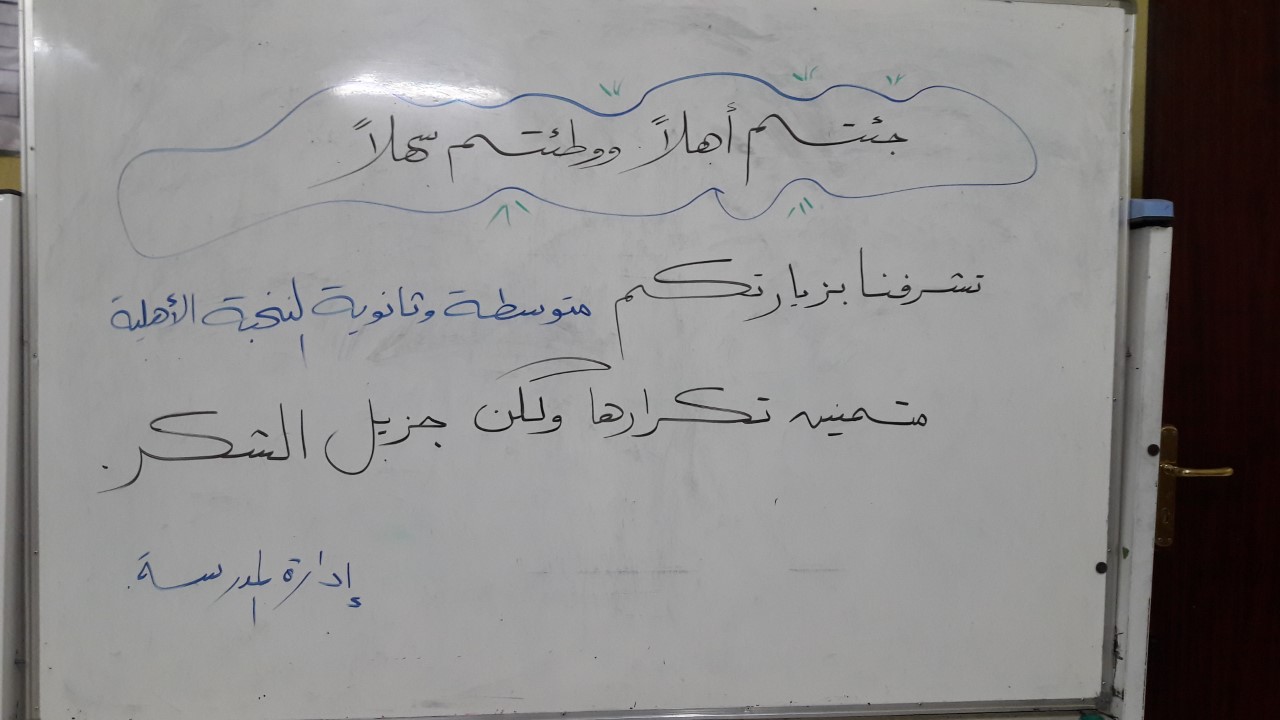 جئتم أهلاً ووطئتم سهلاً
تشرفنا بزيارتكم متوسطة وثانوية النخبة الأهلية
متمنين تكرارها ولكن جزيل الشكر.
إدارة المدرسة.